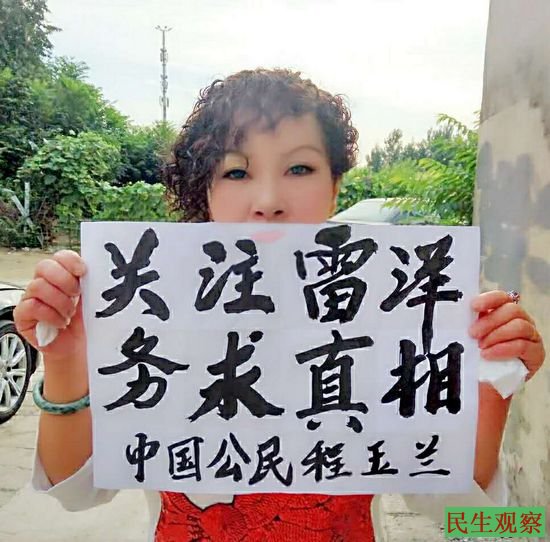 关注雷洋
务求真相
中国公民程玉兰
民生观察